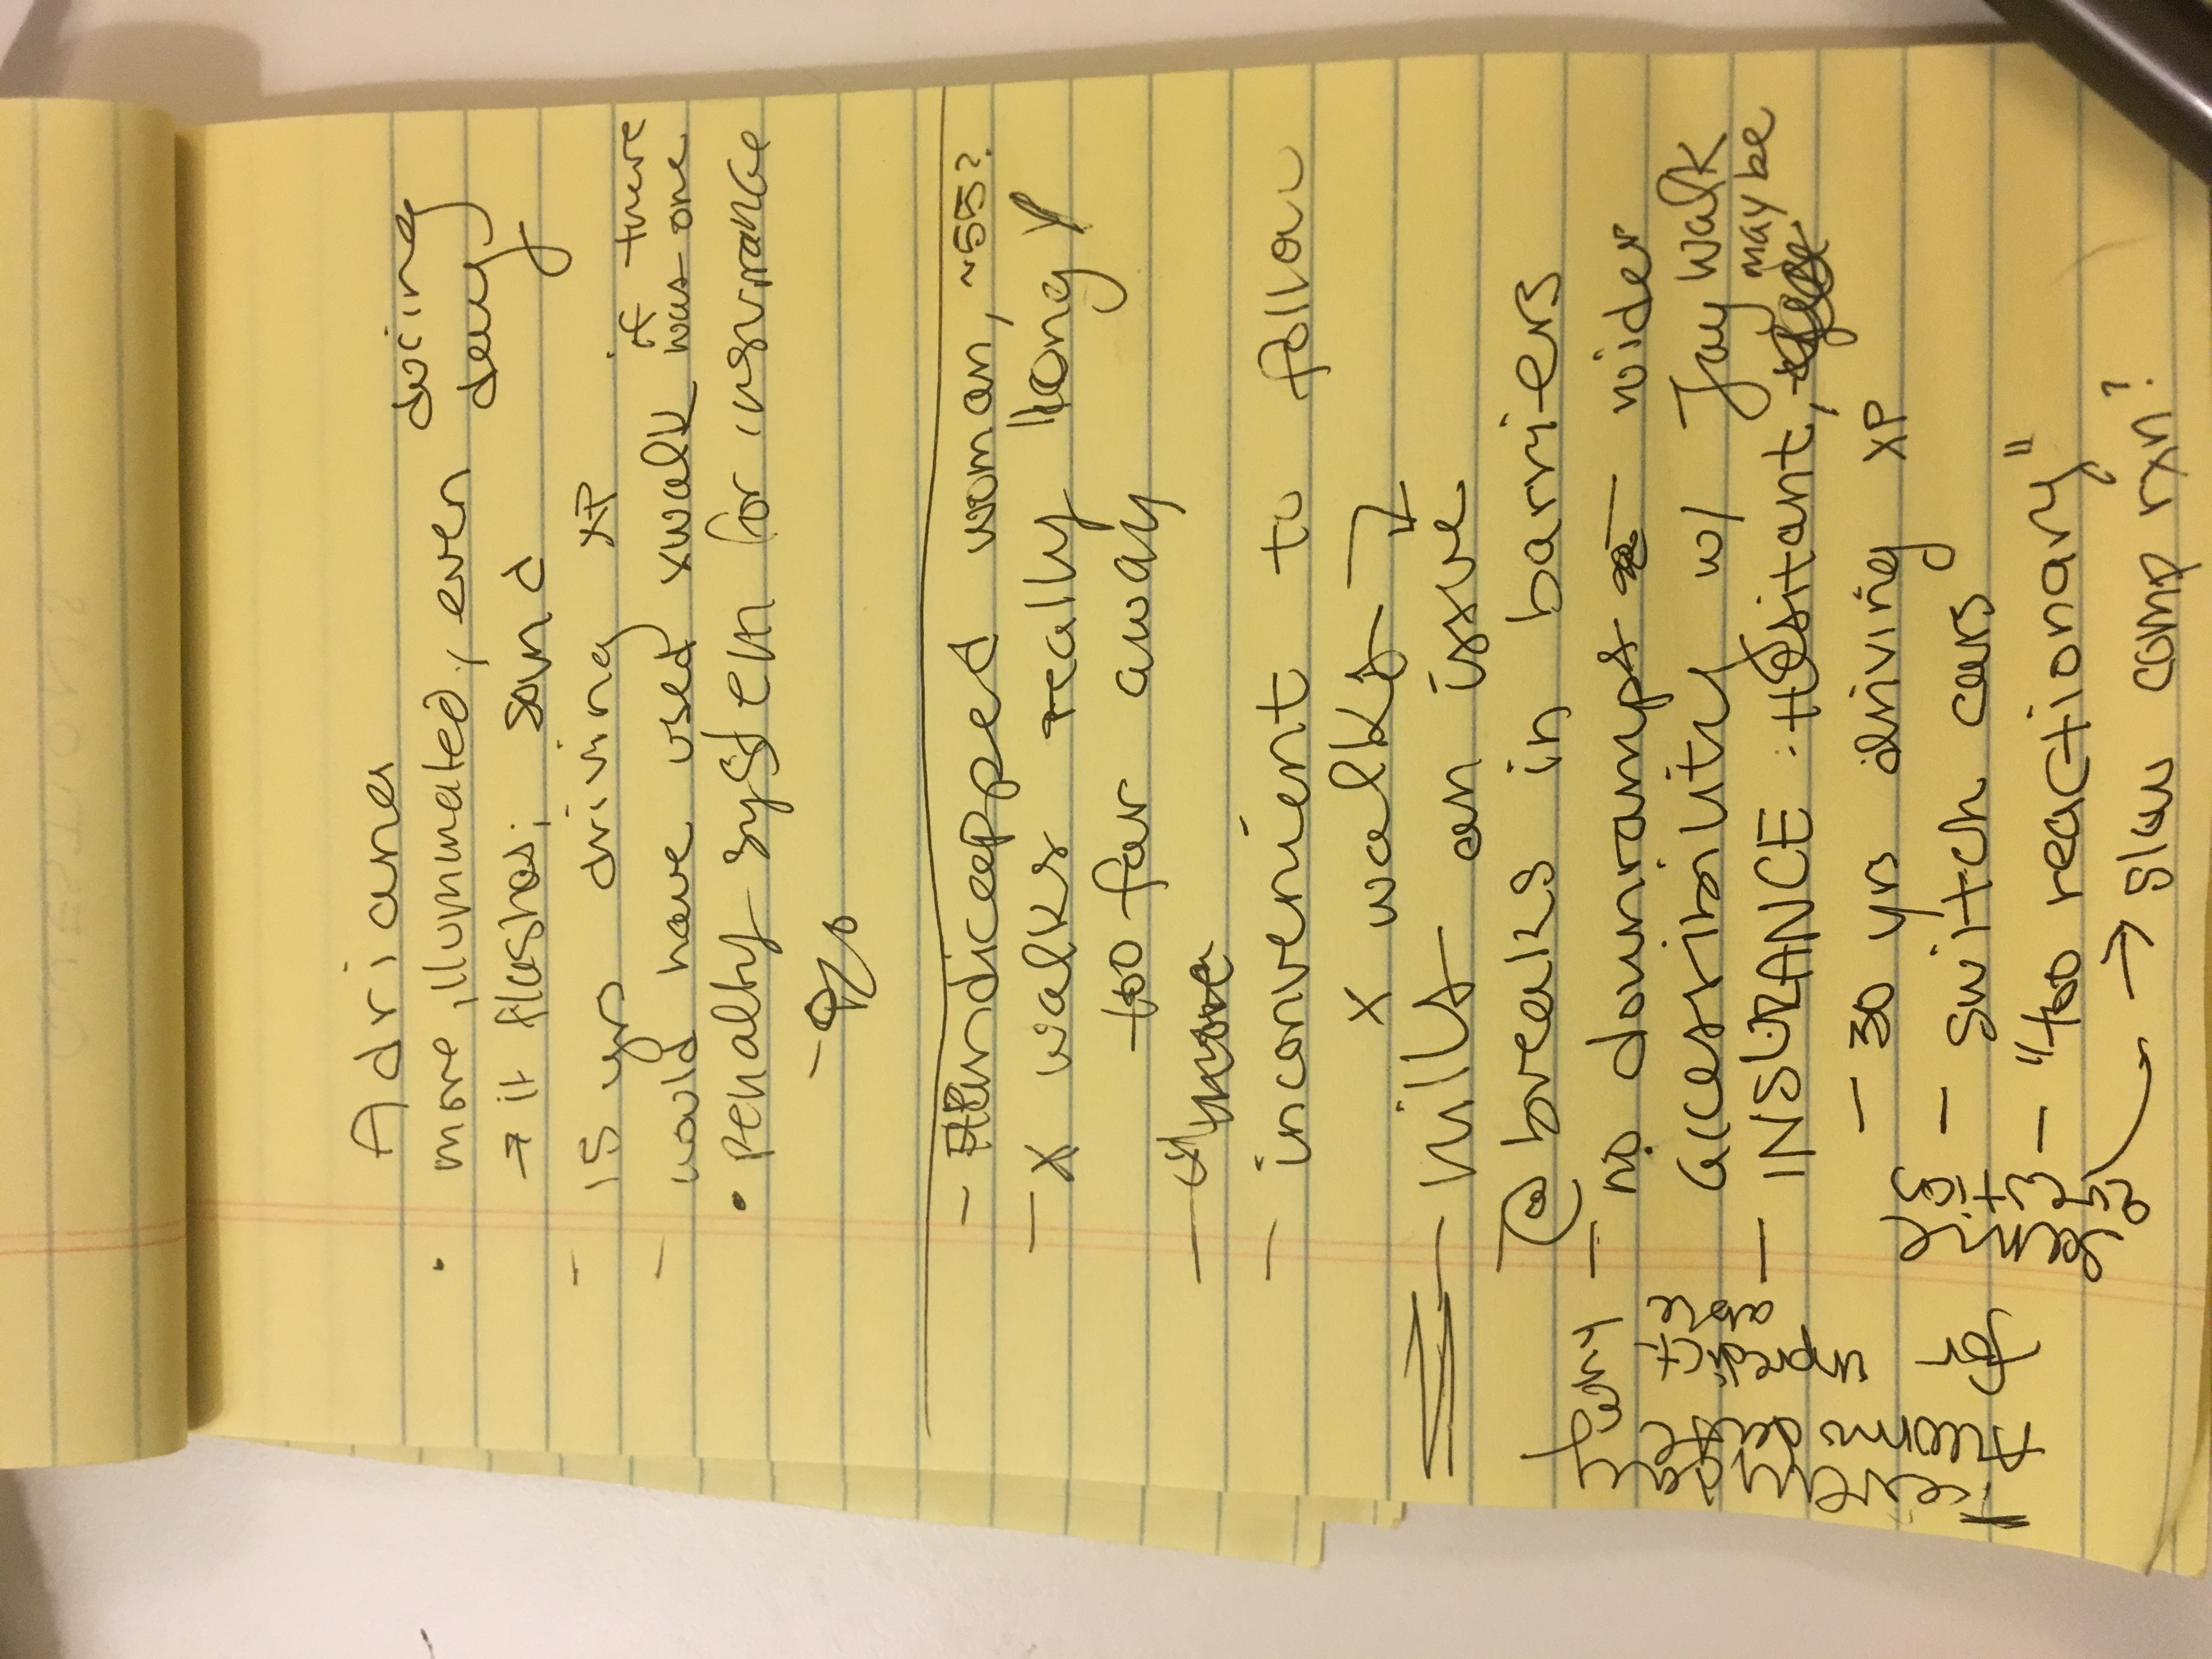 Adriana
• more illuminated, even during day
→ it flashes; sound
- 15 yrs driving XP
- would have used xwalk if there was one
• penalty system for insurance
-
- Handicapped woman, ~55?
- x walks really long
too far away
-
- inconvenient to follow
x walks
- hills an issue
@ breaks in barriers
- no downramps - wider
accessibility w/ Jay walk
- INSURANCE : Hesitant, maybe
- 30 yrs driving XP
- switch cars
- "too reactionary"
→ slow comp rxn?
same question
why
for unpredict-able